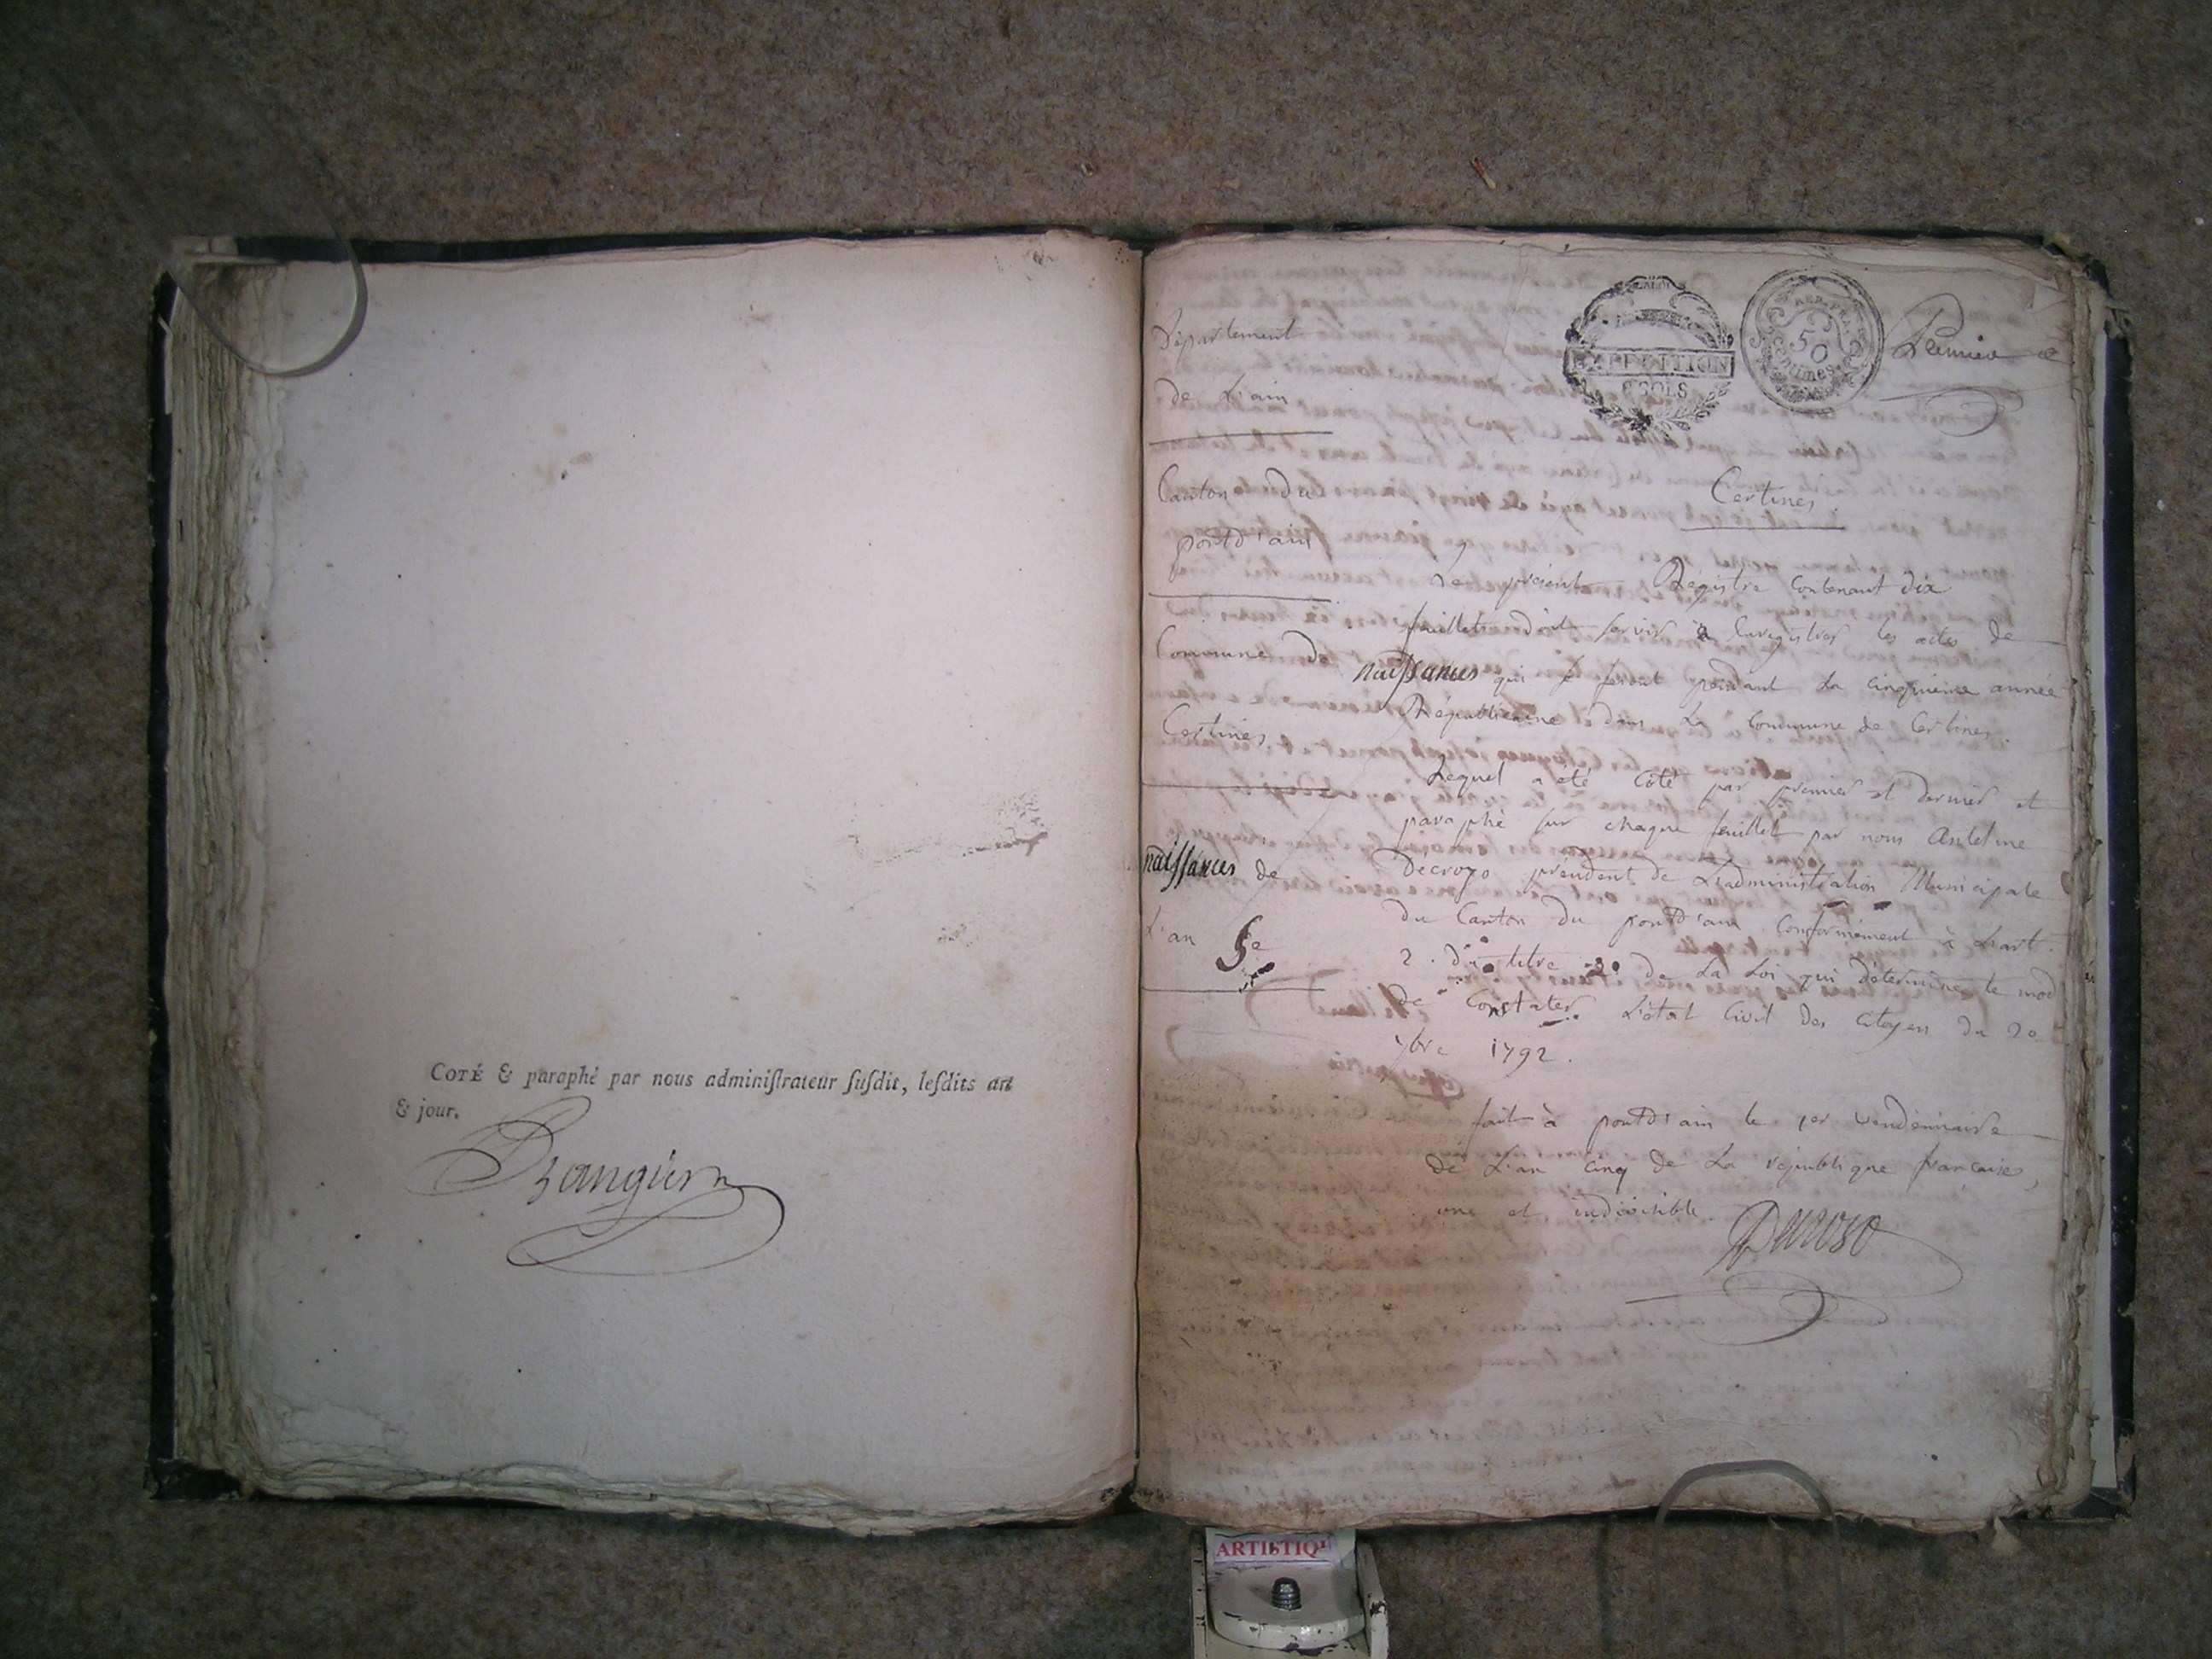 COTÉ & paraphé par nous adminiſtrateur ſuſdit, leſdits an
& jour.
Département
de L'ain
Canton du
pontd'ain
Commune de
Certines
naissances de
L'an 5e
EXPÉDITION
REP. FRA.
50
centimes
Premier
Certines
Le présent Régistre contenant dix
feuillets doit servir à Enregistrer les actes de
naissances qui se feront pendant La cinquième année
Républicaine dans La Commune de Certines.
Lequel a été Côté par premier et dernier et
paraphé sur chaque feuillet par nous Antelme
Décrozo président de L'administration Municipale
du Canton du pontd'ain Conformément à L'art.
2. du titre 2. de La Loi qui détermine le mod
de Constater L'état Civil des Citoyen du 20
7bre 1792.
fait à pontd'ain le 1er Vendémiaire
de L'an cinq de La république française,
une et indivisible.
Decroso
ARTISTIQ